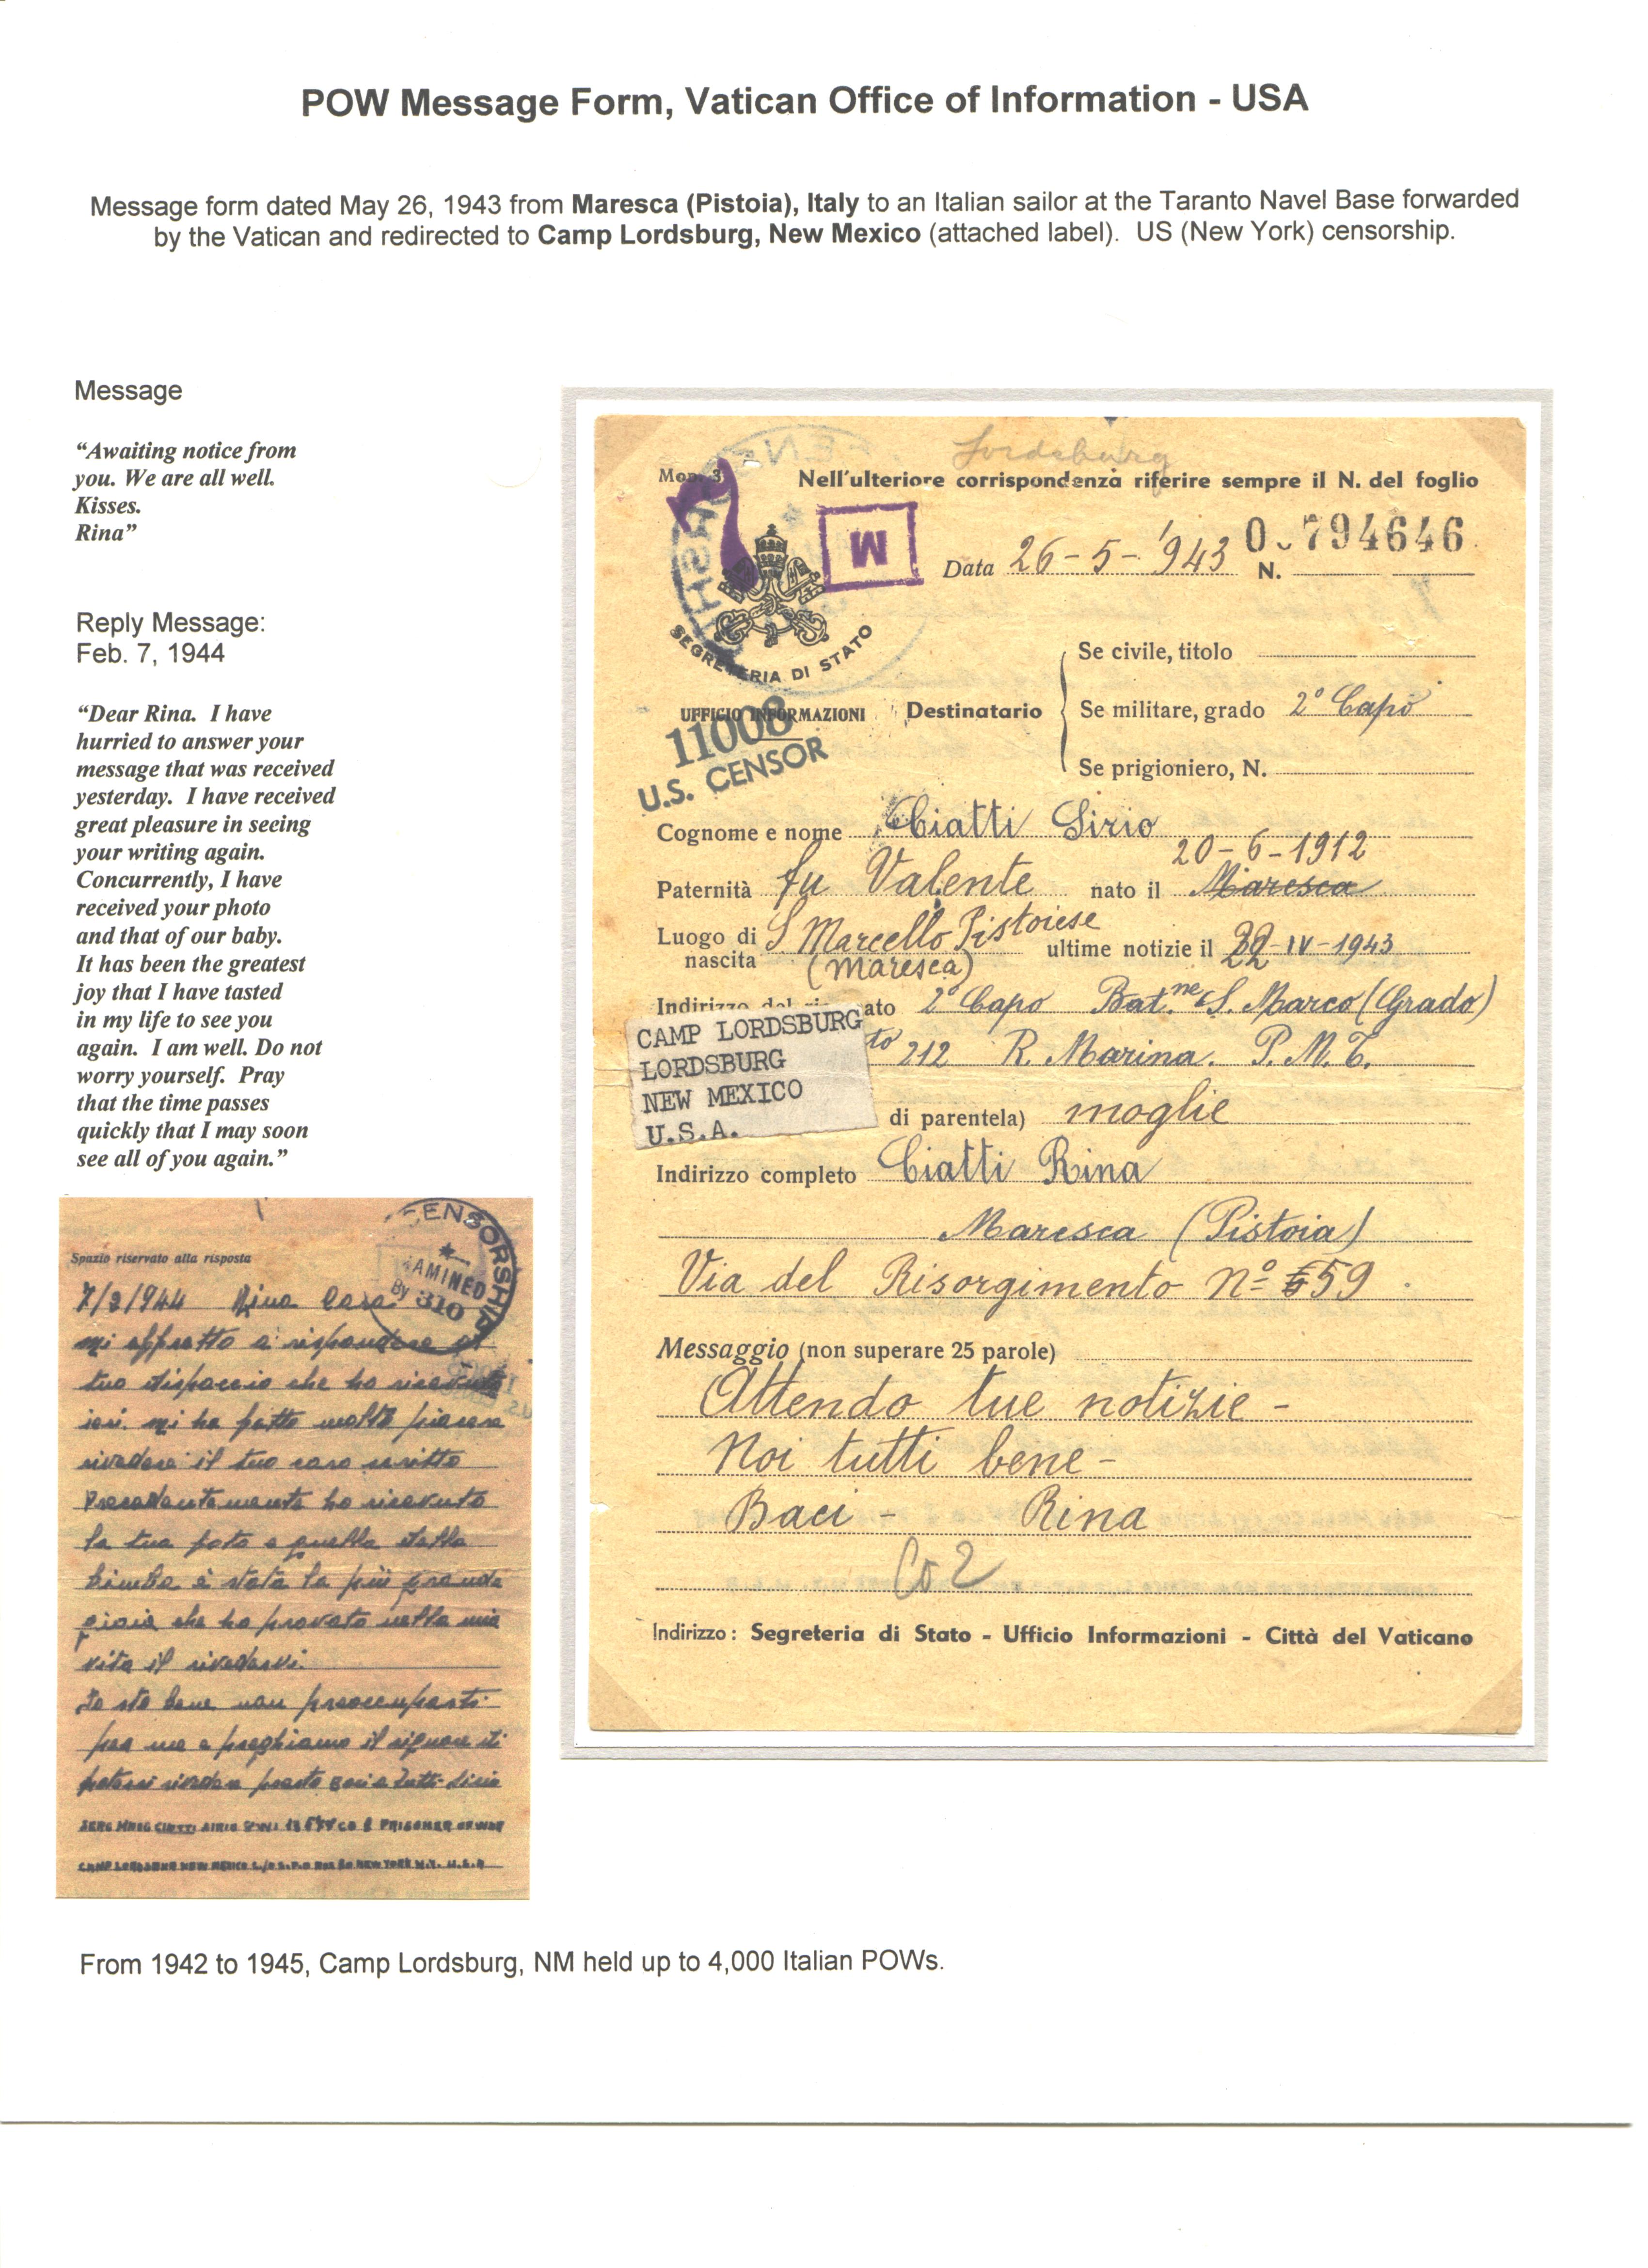 POW Message Form, Vatican Office of Information - USA
Message form dated May 26, 1943 from Maresca (Pistoia), Italy to an Italian sailor at the Taranto Navel Base forwarded
by the Vatican and redirected to Camp Lordsburg, New Mexico (attached label). US (New York) censorship.
Message
“Awaiting notice from
you. We are all well.
Kisses.
Rina”
Reply Message:
Feb. 7, 1944
“Dear Rina. I have
hurried to answer your
message that was received
yesterday. I have received
great pleasure in seeing
your writing again.
Concurrently, I have
received your photo
and that of our baby.
It has been the greatest
joy that I have tasted
in my life to see you
again. I am well. Do not
worry yourself. Pray
that the time passes
quickly that I may soon
see all of you again.”
Lordsburg
Mod. 3
Nell'ulteriore corrispondenza riferire sempre il N. del foglio
M
Data 26-5-'943 N. 0-794646
SEGRETERIA DI STATO
UFFICIO INFORMAZIONI
11008
U.S. CENSOR
Destinatario
Se civile, titolo
Se militare, grado 2° Capo
Se prigioniero, N.
Cognome e nome Ciatti Sirio
20-6-1912
Paternità fu Valente nato il Maresca
Luogo di nascita S Marcello Pistoiese (Maresca) ultime notizie il 22-IV-1943
ato 2° Capo Bat.ne S. Marco (Grado)
to 212 R. Marina. P.M.T.
CAMP LORDSBURG
LORDSBURG
NEW MEXICO
U.S.A.
di parentela) moglie
Indirizzo completo Ciatti Rina
Maresca (Pistoia)
Via del Risorgimento N° 59
Messaggio (non superare 25 parole)
Attendo tue notizie -
Noi tutti bene -
Baci - Rina
Co 2
Indirizzo: Segreteria di Stato - Ufficio Informazioni - Città del Vaticano
CENSORSHIP
AMINED
By 310
Spazio riservato alla risposta
7/2/944 Rina Cara
mi affretto a rispondere al
tuo dispaccio che ho ricevuto
ieri. mi ha fatto molto piacere
rivedere il tuo caro scritto
Precedentemente ho ricevuto
la tua foto e quella della
bimba è stata la più grande
gioia che ho provato nella mia
vita il rivedervi.
Io sto bene non preoccuparti
per me e preghiamo il signore di
poterci rivedere presto baci a tutti Sirio
CIATTI SIRIO CO PRISONER OF WAR
CAMP LORDSBURG NEW MEXICO NEW YORK N.Y. U.S.A
From 1942 to 1945, Camp Lordsburg, NM held up to 4,000 Italian POWs.